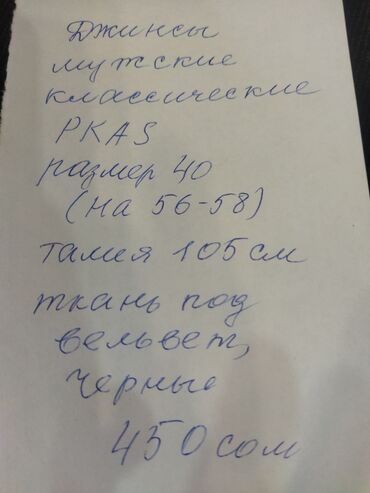 Джинсы
мужские
классические
PKAS
размер 40
(на 56-58)
талия 105 см
ткань под
вельвет,
черные
450 сом